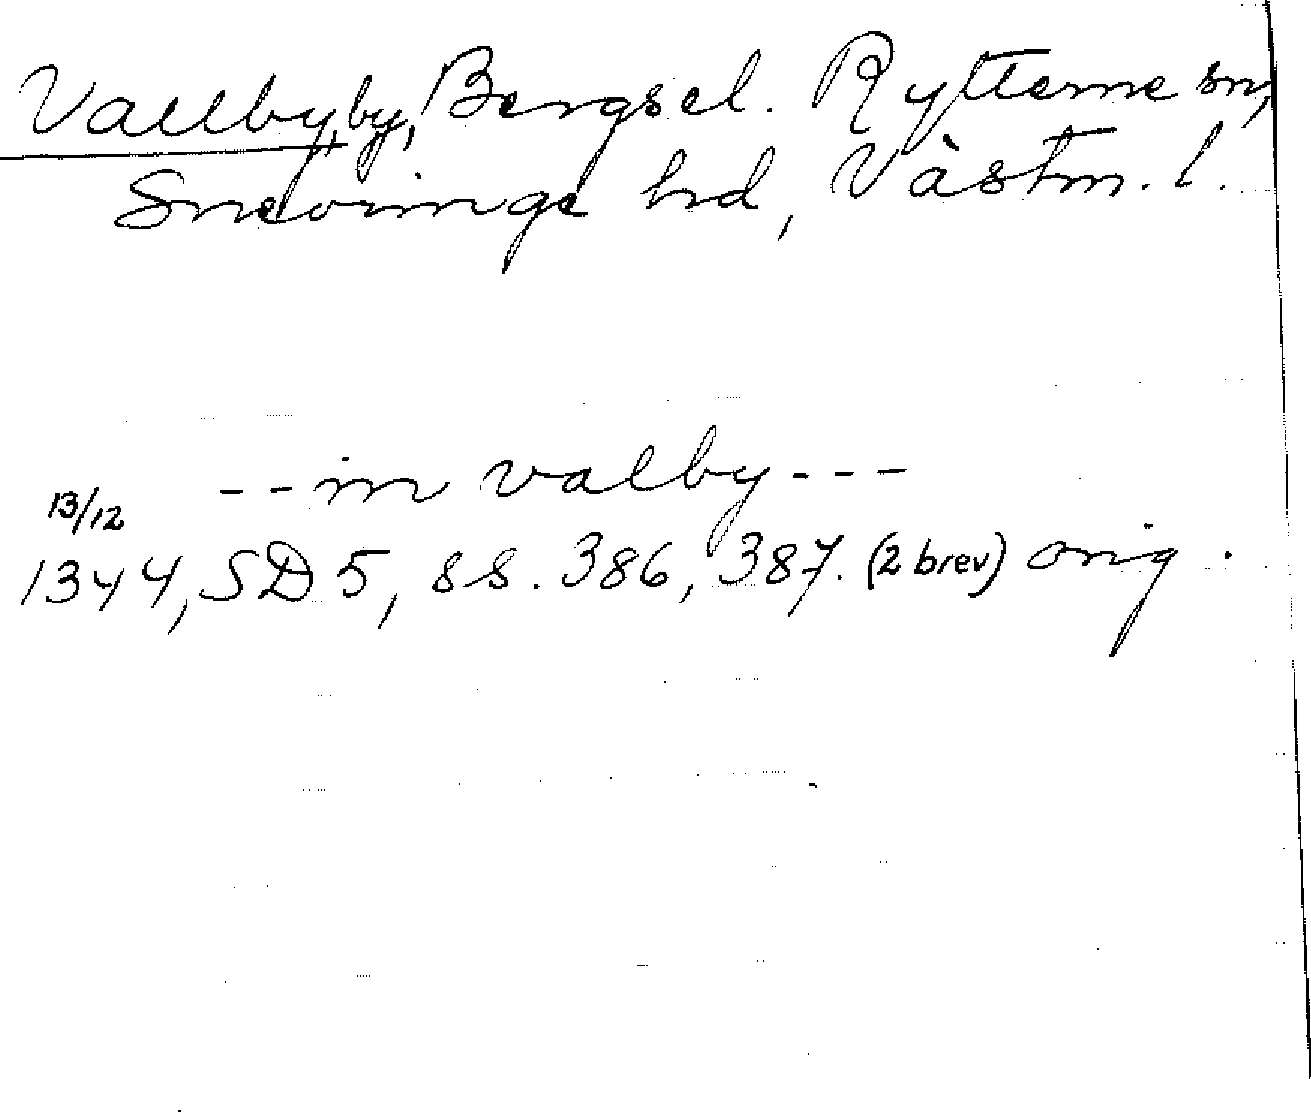 Vallby, by, Bergsel. Rytterne sn,
Snevringe hd, Västm. l.
-- in valby ---
13/12
1344, SD 5, ss. 386, 387. (2 brev) orig.